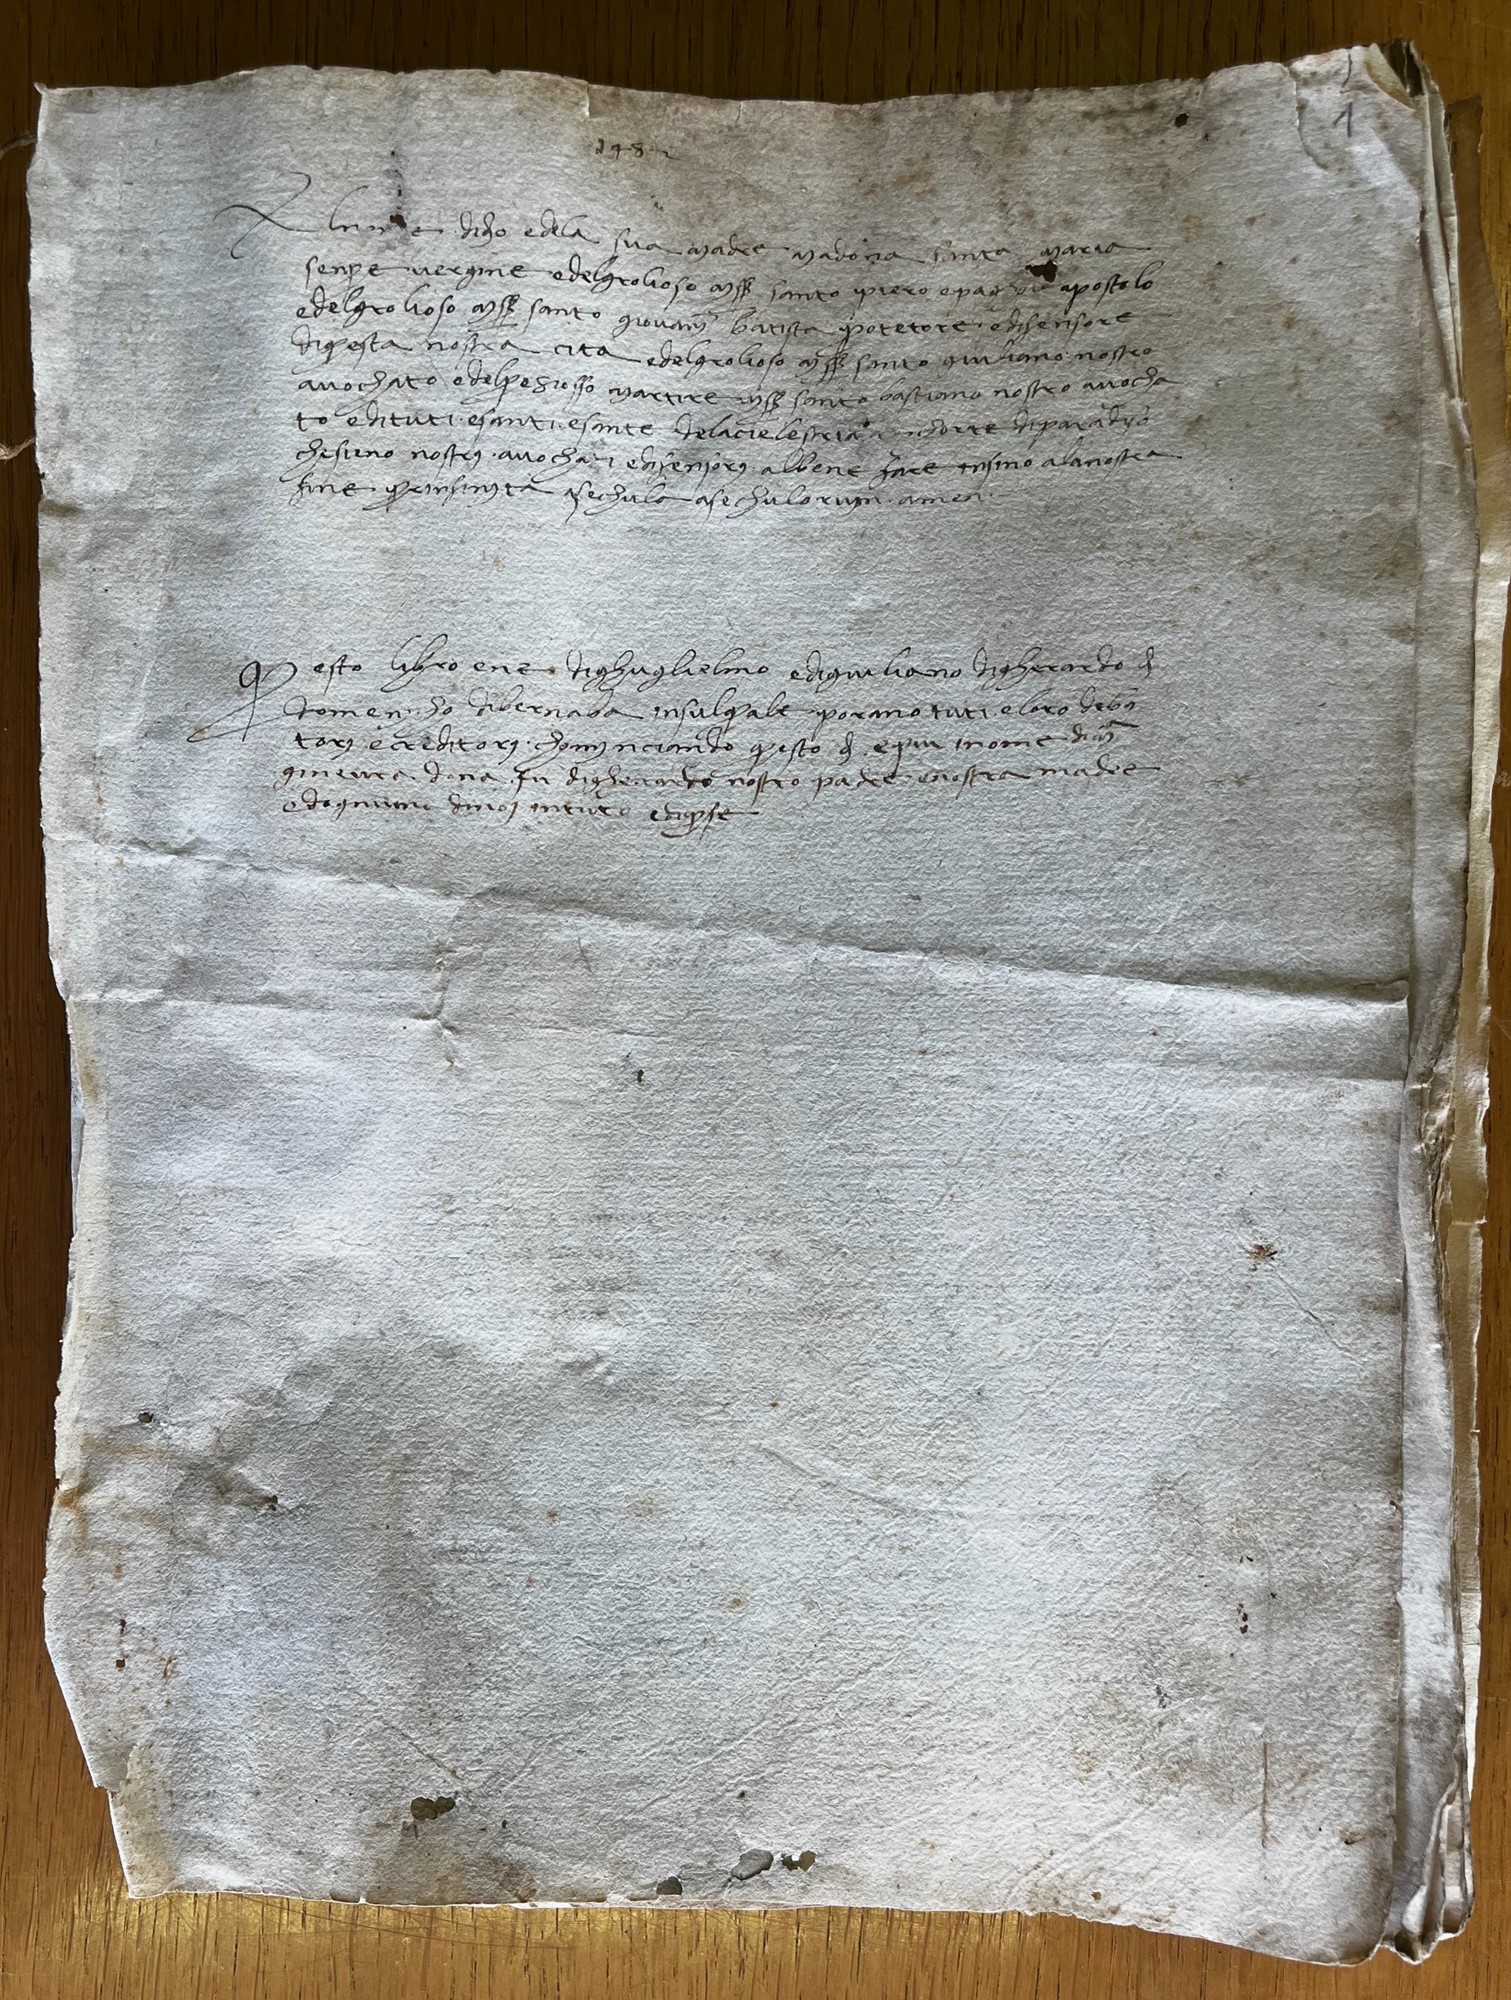 1
148
Alnome didio e dela sua madre madona santa maria
senpre vergine e delgrolioso mss santo piero e pagholo apostolo
e delgrolioso mss santo giovani batista protetore e difensore
diquesta nostra cita e delgrolioso mss santo giuliano nostro
avochato e delprezioso martire mss santo bastiano nostro avocha
to e dituti esanti esante delacielestiale chorte diparadiso
chesieno nostri avochati e difensori albene fare insino alanostra
fine per infinita sechula asechulorum amen
Questo libro ene dighuglielmo e digiuliano digherardo di
domenicho dibernaba insulquale porano tuti eloro debi
tori e creditori chominciando questo di e qui inome dim
ginevra dona fu digherardo nostro padre enostra madre
e dognuno dinoi intuto e diperse